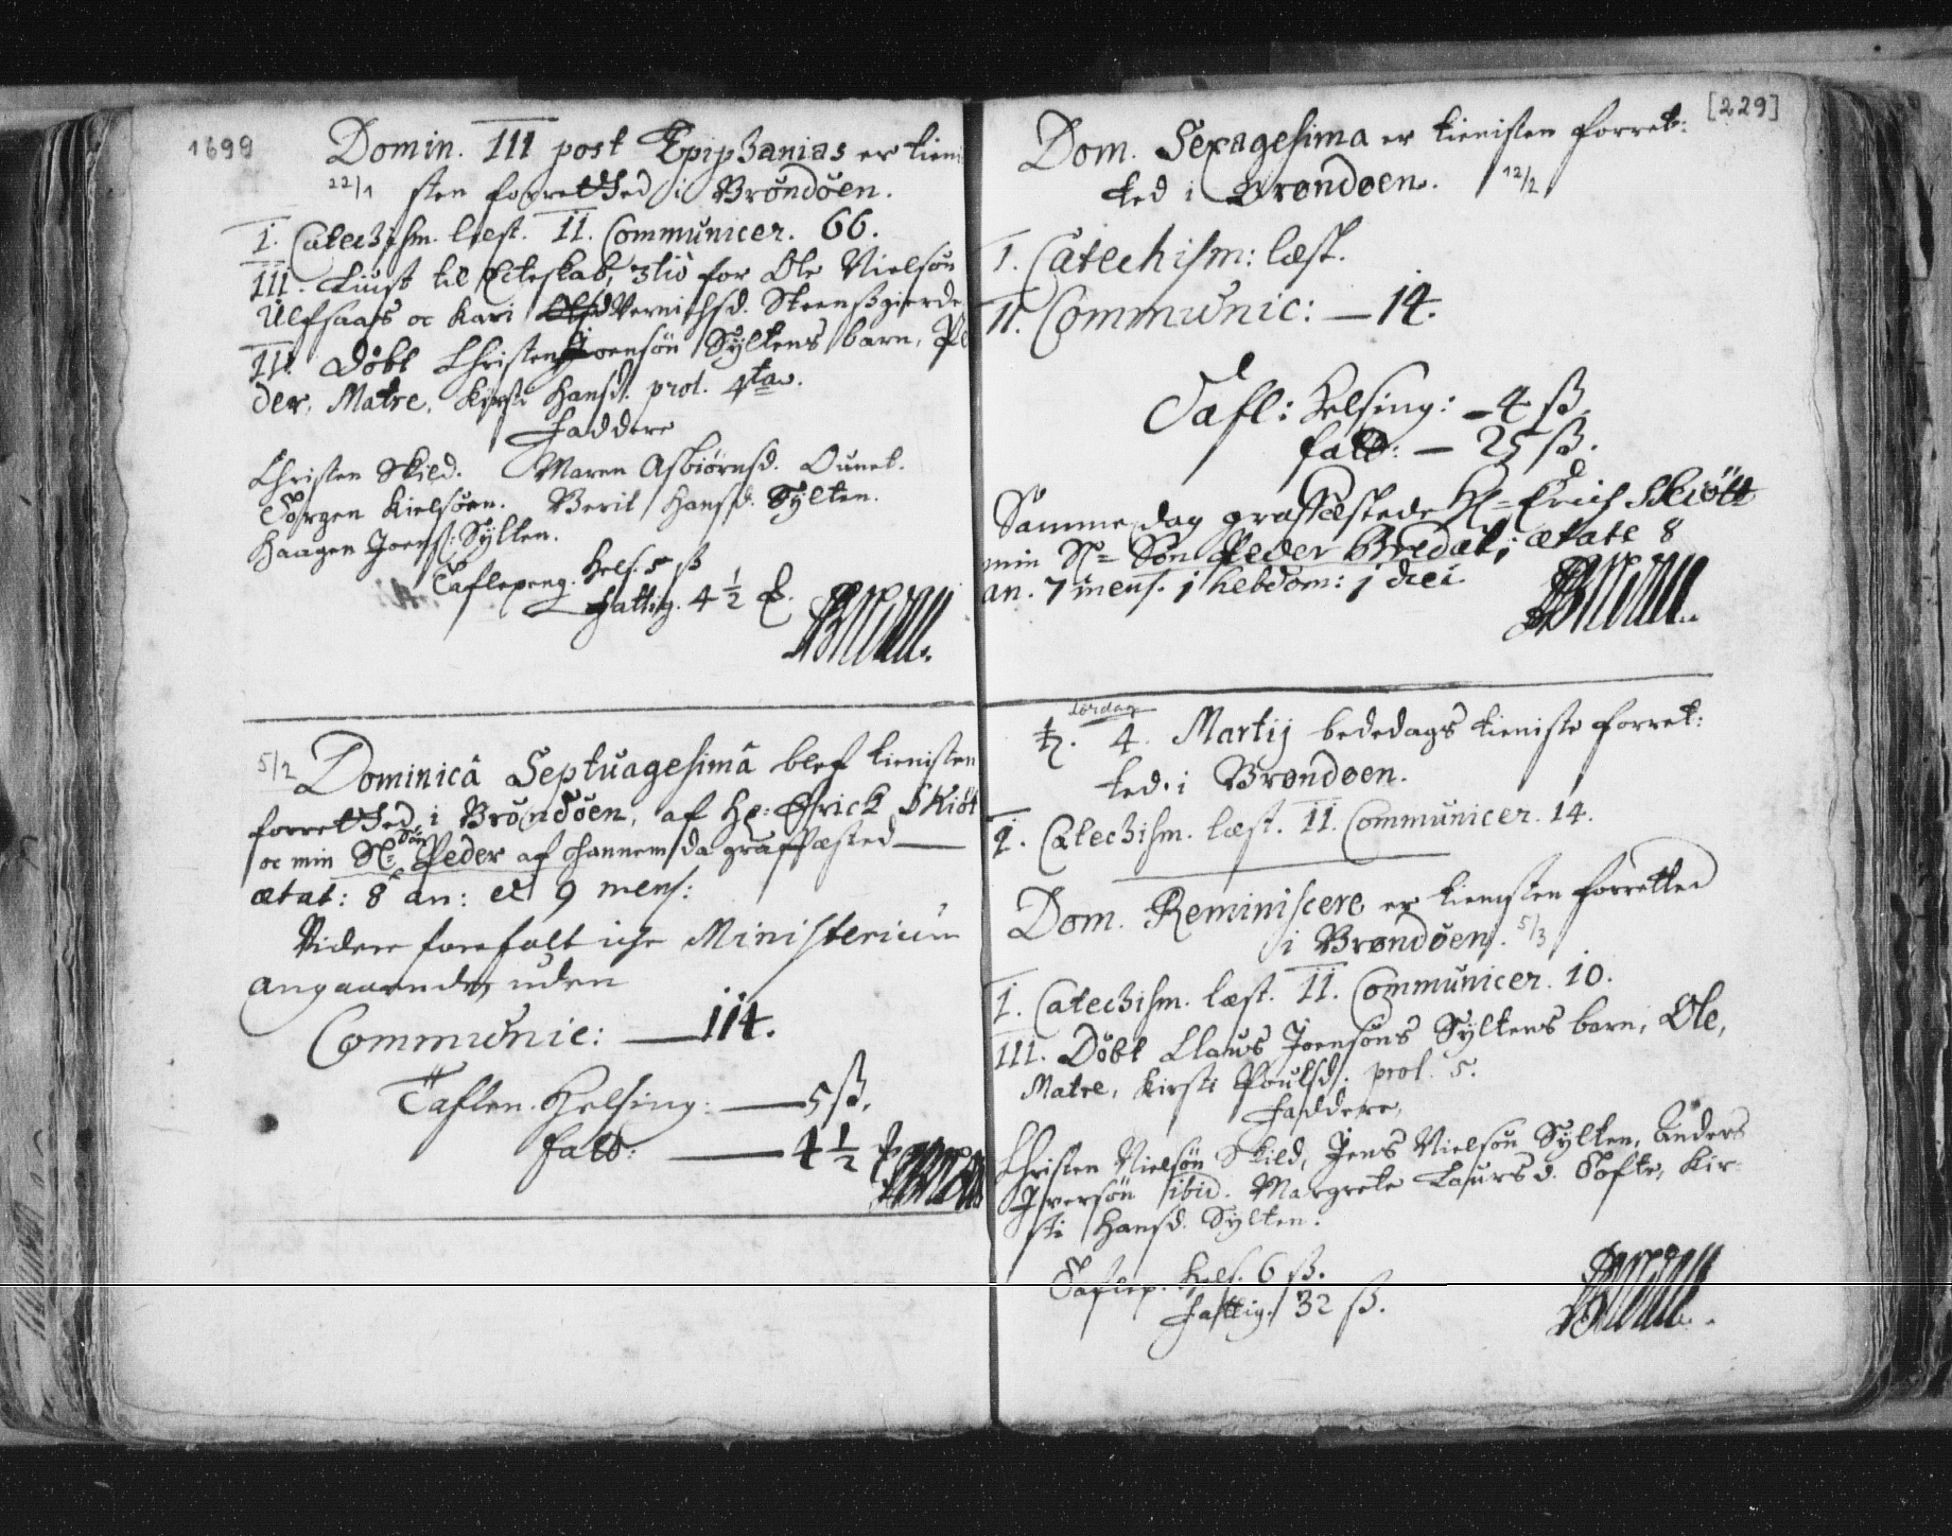 1699
Domin. III post Epiphanias er tieni
22/1 sten forretted i Brönöen.
I. Catechism. læst. II. Communicer. 66.
III. Liust til Ecteskab, 3tio for Ole Nielsön
Ulfsaas oc Kari Skeenßgierde
Döbt Christen Joensön Syltens barn, Pe
der, Matre, Kirsti Hansd. prol. 4ta.
Faddere
Christen Skild. Maren Asbiörnsd.
Torgen Kielsöen. Berit Hansd. Sylten.
Haagen Joens: Sylten.
Taflepeng. Hels. 5 ß
Fattig. 4 1/2
5/2 Dominicâ Septuagesimâ blef tienisten
forretted i Bröndöen, af Hr: Erick Skiöt
oc min Sl= Sön Peder af hannem da graffæsted
ætat: 8 an: et 9 mens:
Videre forefalt iche Ministerium
angaaende, uden
Communic: — 114.
Taflen. Helsing: — 5 ß.
fatt: — 4 1/2
[229]
Dom. Sexagesima er tienisten forret:
ted i Brøndøen. 12/2
I. Catechism: læst.
II. Communic: — 14.
Tafl: Helsing: — 4 ß.
fatt: — 25 ß.
Samme dag graffæstede Hr= Erich Skiött
min Sl= Sön Peder Bredal, ætate 8
an. 7 mens. 1 hebdom: 1 diei
lördag
♄. 4. Martij bededags tieniste forret:
ted. i Brøndøen.
I. Catechism. læst. II. Communicer. 14.
Dom. Reminiscere er tienisten forretted
i Brøndöen. 5/3
I. Catechism. læst. II. Communicer. 10.
III. Döbt Claus Joensöns Syltens barn, Ole,
Matre, Kirsti Poulsd: prol. 5.
Faddere,
Christen Nielsön Skild, Jens Nielsön Sylten, Anders
Iversön ibid. Margrete Laursd. Tofte, Kir-
sti Hansd. Sylten.
Taflep. Hels. 6 ß.
Fattig. 32 ß.